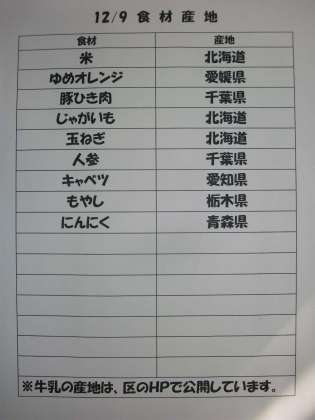 12/9 食材産地
食材 産地
米 北海道
ゆめオレンジ 愛媛県
豚ひき肉 千葉県
じゃがいも 北海道
玉ねぎ 北海道
人参 千葉県
キャベツ 愛知県
もやし 栃木県
にんにく 青森県
※牛乳の産地は、区のHPで公開しています。